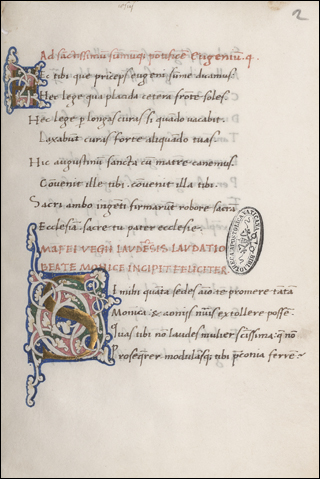 2
Ad sactissimū sumūq; pontificē Eugeniū. q.
HEc tibi que priceps eugeni sūme dicamus.
Hec lege qua placida cetera frōte soles.
Hec lege p longas curas si quādo vacabit.
Laxabūt curas forte aliquādo tuas.
Hic augustinū sancta cū matre canemus
Cōvenit ille tibi. cōvenit illa tibi.
Sacri ambo ingēti firmarūt robore sacrā
Ecclesiā. sacre tu pater ecclesie.
MAFEI VEGII LAVDĒSIS LAVDATIO
BEATE MONICE INCIPIT FELICITER
SI mihi quāta sedes aīo te promere tātā
Monica & aoniis nūis extollere possē.
Quas tibi nō laudes mulier scīssima: q̄ nō
Proseq̄rer modulāsq; tibi pconia ferrē